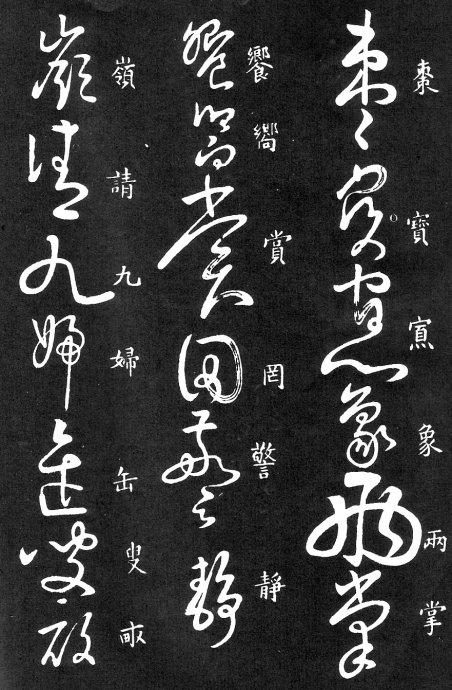 棗寶寡象兩掌
饗嚮賞罔警靜
嶺請九婦缶叟畝